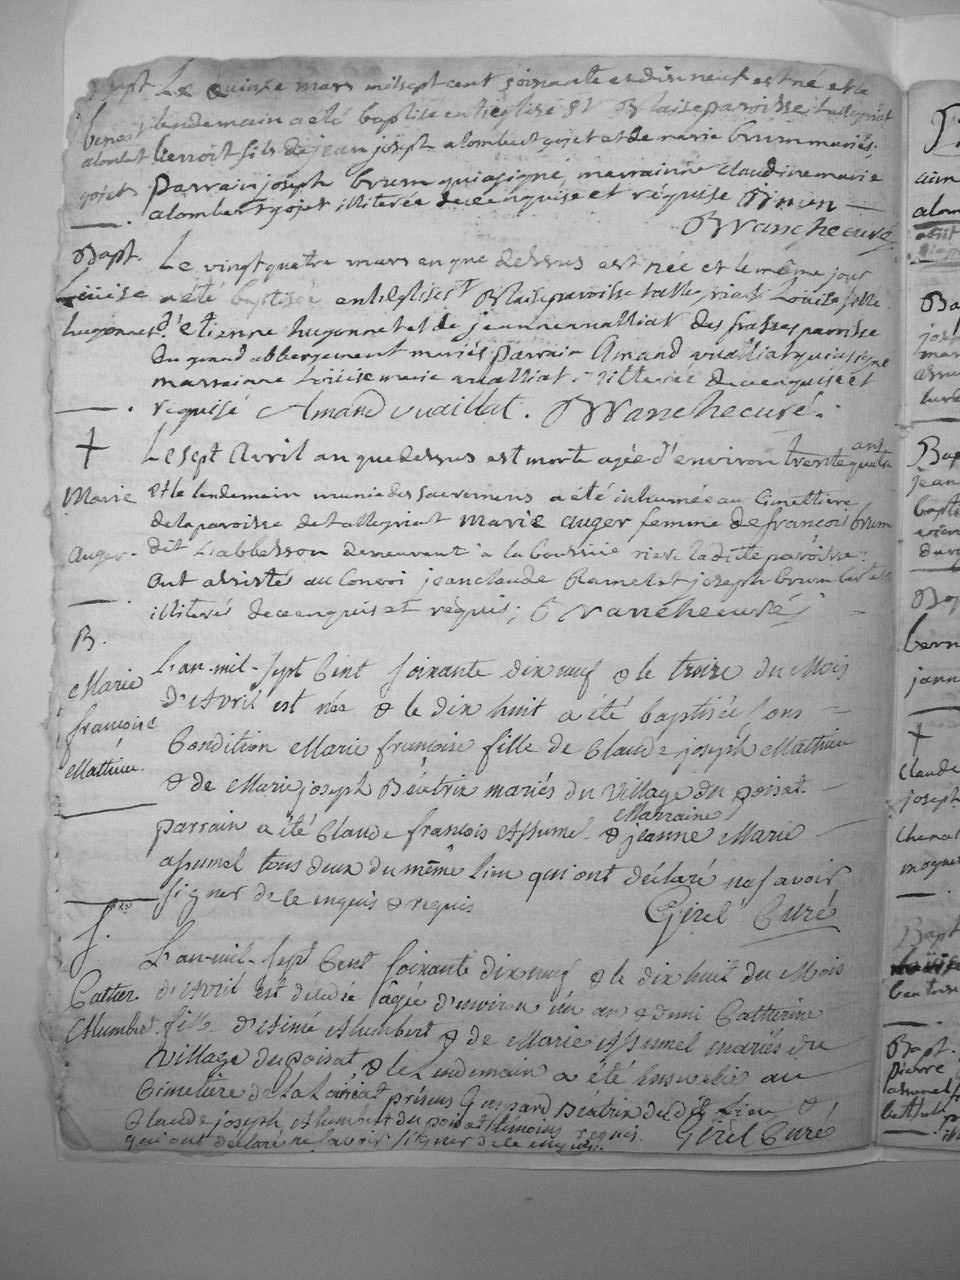 Bapt Le quinse mars mil sept cent soissante et dix neuf est né et le
benoit lendemain a été baptisé en l'eglise St Blaise paroisse tallegriat
alombert benoit fils de jean joseph alombert gojet et de marie brum mariés,
gojet parrain joseph brum qui a signé, marrainne claudine marie
alombert gojet illiterée de ce enquise et requise
Branche curé
Bapt. Le vingt quatre mars an que dessus est née et le même jour
Loüise a été baptisée en l'eglise St Blaise paroisse tallegriat Loüise fille
hugonnet d'etienne hugonnet et de jeanne vualliat des frasses paroisse
du grand abbergement mariés parrain Amand vualliat qui a signé
marrainne Loüise marie vualliat illiterée de ce enquise et
requise Amand vuaillat. Branche curé.
Le sept Avril an que dessus est morte agée d'environ trente quatre ans
Marie et le lendemain munie des sacremens a été inhumée au Cimettiere
de la paroisse de tallegriat marie auger femme de francois brum
Auger dit Labbesson demeurant à la boussiie riere la ditte paroisse
ont assistés au Convoi jean claude Ramel et joseph brum
illiterés de ce enquis et requis; Branche curé
B.
Marie L'an mil Sept Cent Soixante dix neuf & le treize du Mois
françoise d'Avril est née & le dix huit a été baptisée sous
Mathieu Condition Marie françoise fille de Claude joseph Mathieu
& de Marie joseph Béatrix mariés du Village du poisat
parrain a été Claude françois Assumel & Marraine jeanne Marie
assumel tous deux du même lieu qui ont déclaré ne savoir
signer de ce enquis & requis Girel Curé
S.re L'an mil Sept Cent Soixante dix neuf & le dix huit du Mois
Cather. d'Avril est decedée agée d'environ un an & demi Catherine
Humbert fille d'Aimé Humbert & de Marie Assumel mariés du
Village du poisat, & le Lendemain a été ensevelie au
Cimetiere de la Lariat présens Gaspard Béatrix du dit Lieu &
Claude joseph Humbert du poisat témoins requis
qui ont declaré ne savoir signer de ce enquis. Girel Curé